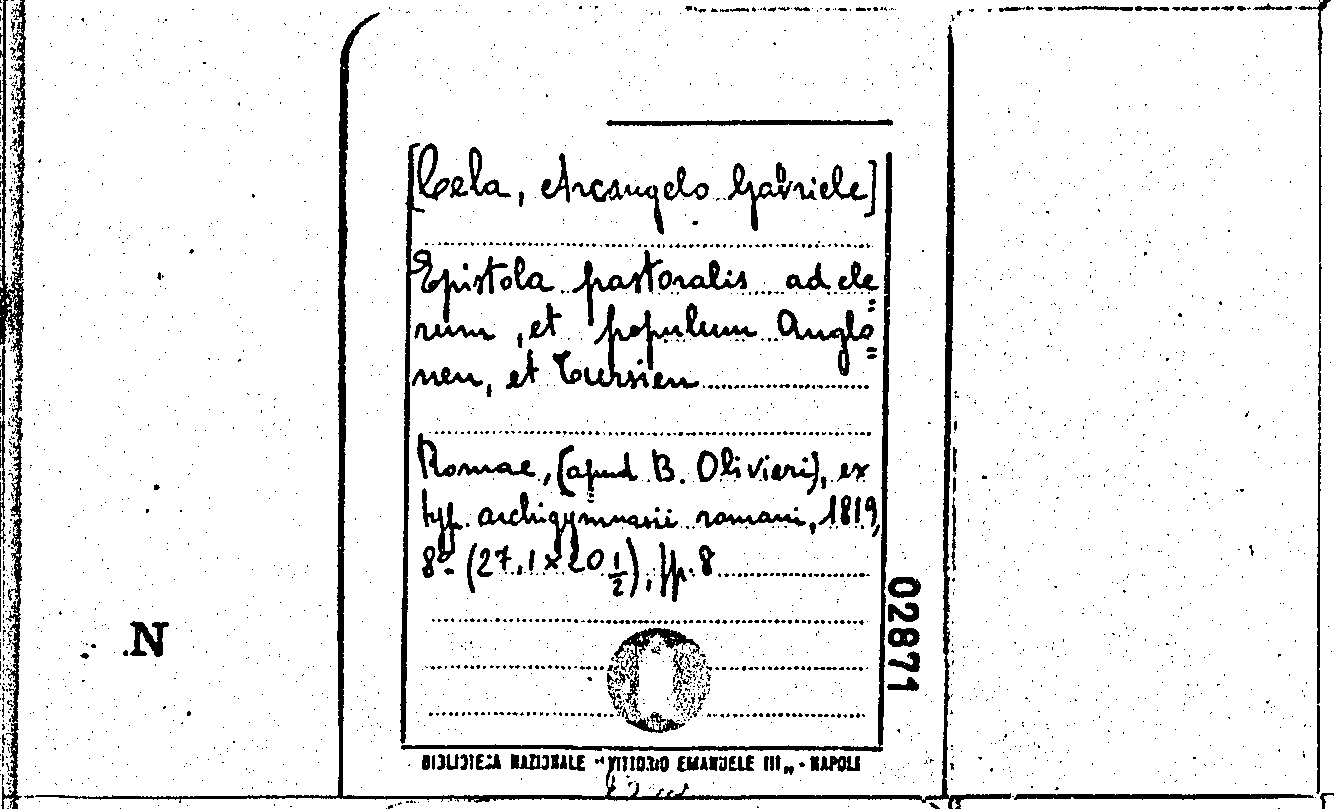 [Cela, Arcangelo Gabriele]
Epistola pastoralis ad cle=
rum, et populum Anglo=
nen, et Tursien
Romae, (apud B. Olivieri), ex
typ. archigymnasii romani, 1819,
8º. (27,1 x 20 1/2), pp. 8
02871
.N
BIBLIOTECA NAZIONALE "VITTORIO EMANUELE III„ - NAPOLI